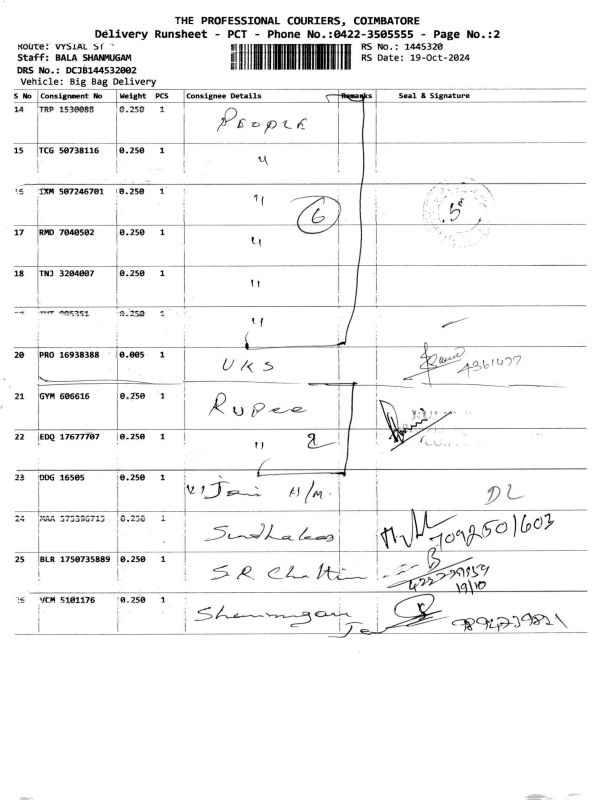 THE PROFESSIONAL COURIERS, COIMBATORE
Delivery Runsheet - PCT - Phone No.:0422-3505555 - Page No.:2
Route: VYSIAL ST
RS No.: 1445320
Staff: BALA SHANMUGAM
RS Date: 19-Oct-2024
DRS No.: DCJB144532002
Vehicle: Big Bag Delivery
S No Consignment No Weight PCS Consignee Details Remarks Seal & Signature
14 TRP 1530088 0.250 1 PEOPLE
15 TCG 50738116 0.250 1 "
16 IXM 507246701 0.250 1 " 6 5
17 RMD 7040502 0.250 1 "
18 TNJ 3204007 0.250 1 "
0.250 1 "
20 PRO 16938388 0.005 1 UKS
21 GYM 606616 0.250 1 Rupee
22 EDQ 17677707 0.250 1 " 2
23 DDG 16505 0.250 1 H/M. DL
24 0.250 1 7092501603
25 BLR 1750735889 0.250 1 S.R. 19/10
26 VCM 5101176 0.250 1 Shanmugam